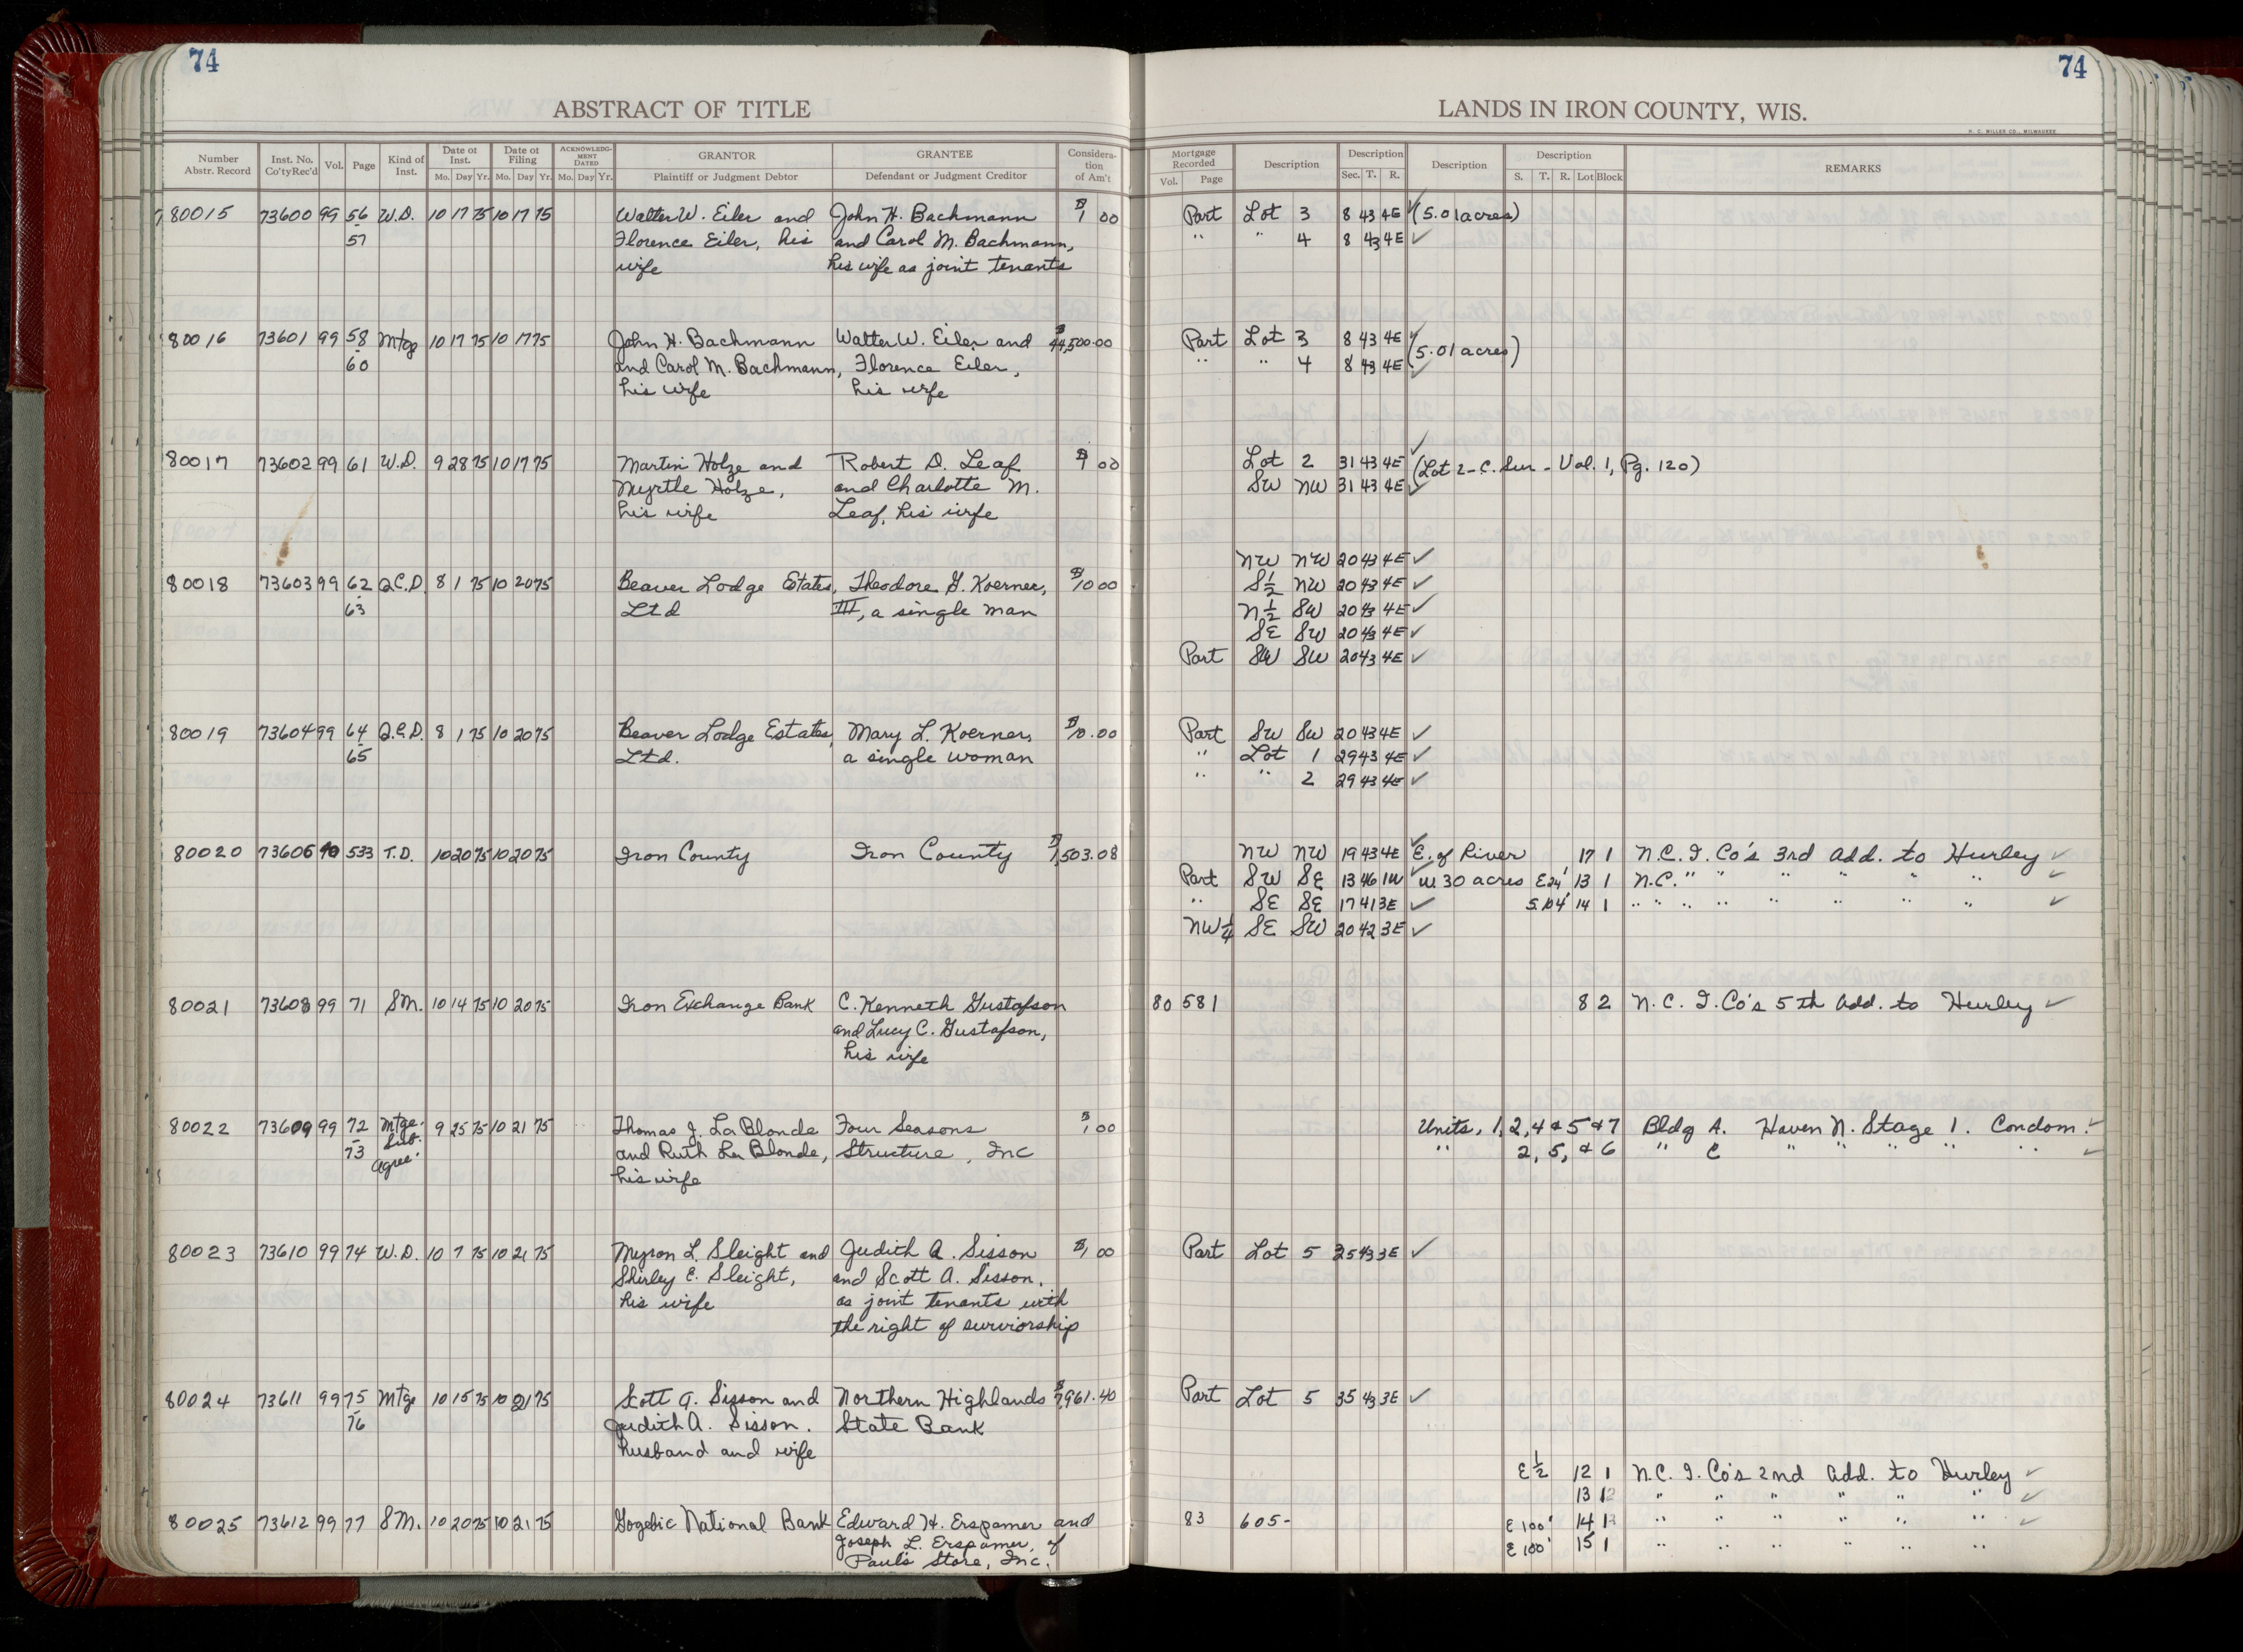 74
74
ABSTRACT OF TITLE
LANDS IN IRON COUNTY, WIS.
H. C. MILLER CO., MILWAUKEE
Number Abstr. Record Inst. No. Co'ty Rec'd Vol. Page Kind of Inst. Date of Inst. Mo. Day Yr. Date of Filing Mo. Day Yr. ACKNOWLEDGMENT DATED Mo. Day Yr. GRANTOR Plaintiff or Judgment Debtor GRANTEE Defendant or Judgment Creditor Consideration of Am't
Mortgage Recorded Vol. Page Description Description Sec. T. R. Description Description S. T. R. Lot Block REMARKS
80015 73600 99 56 W.D. 10 17 75 10 17 75 Walter W. Eiler and John H. Bachmann $1 00 Part Lot 3 8 43 4E ✓ (5.01 acres)
57 Florence Eiler, his and Carol M. Bachmann, " " 4 8 43 4E ✓
wife his wife as joint tenants
80016 73601 99 58 Mtg 10 17 75 10 17 75 John H. Bachmann Walter W. Eiler and $44,500.00 Part Lot 3 8 43 4E ✓ (5.01 acres)
60 and Carol M. Bachmann, Florence Eiler, " " 4 8 43 4E ✓
his wife his wife
80017 73602 99 61 W.D. 9 28 75 10 17 75 Martin Holze and Robert D. Leaf $1 00 Lot 2 31 43 4E ✓ (Lot 2 - C. Sur - Vol. 1, Pg. 120)
Myrtle Holze, and Charlotte M. SW NW 31 43 4E ✓
his wife Leaf, his wife
NW NW 20 43 4E ✓
80018 73603 99 62 Q.C.D. 8 1 75 10 20 75 Beaver Lodge Estates, Theodore G. Koerner, $10 00 S½ NW 20 43 4E ✓
63 Ltd III, a single man N½ SW 20 43 4E ✓
SE SW 20 43 4E ✓
Part SW SW 20 43 4E ✓
80019 73604 99 64 Q.C.D. 8 1 75 10 20 75 Beaver Lodge Estates, Mary L. Koerner, $10.00 Part SW SW 20 43 4E ✓
65 Ltd. a single woman " Lot 1 29 43 4E ✓
" " 2 29 43 4E ✓
80020 73606 90 533 T.D. 10 20 75 10 20 75 Iron County Iron County $1,503.08 NW NW 19 43 4E ✓ E. of River 17 1 N.C. I. Co's 3rd Add. to Hurley ✓
Part SW SE 13 46 1W ✓ W 30 acres E 24' 13 1 N.C. " " " " " " ✓
" SE SE 17 41 3E ✓ S 104' 14 1 " " " " " " " " ✓
NW¼ SE SW 20 42 3E ✓
80021 73608 99 71 SM. 10 14 75 10 20 75 Iron Exchange Bank C. Kenneth Gustafson 80 581 8 2 N. C. I. Co's 5th Add. to Hurley ✓
and Lucy C. Gustafson,
his wife
80022 73609 99 72 Mtge. 9 25 75 10 21 75 Thomas J. LaBlonde Four Seasons $1,00 Units, 1, 2, 4 & 5 & 7 Bldg A. Haven N. Stage 1. Condom. ✓
73 Sub. Agree. and Ruth La Blonde, Structure, Inc " 2, 5, & 6 " C " " " " " ✓
his wife
80023 73610 99 74 W.D. 10 7 75 10 21 75 Myron L. Sleight and Judith A. Sisson $1,00 Part Lot 5 35 43 3E ✓
Shirley E. Sleight, and Scott A. Sisson,
his wife as joint tenants with
the right of surviorship
80024 73611 99 75 Mtge 10 15 75 10 21 75 Scott A. Sisson and Northern Highlands $7,961.40 Part Lot 5 35 43 3E ✓
76 Judith A. Sisson. State Bank
husband and wife
E½ 12 1 N.C. I. Co's 2nd Add. to Hurley ✓
13 1 " " " " " " ✓
80025 73612 99 77 SM. 10 20 75 10 21 75 Gogebic National Bank Edward H. Erspamer and 83 605- E 100' 14 1 " " " " " " ✓
Joseph L. Erspamer, of E 100' 15 1 " " " " " "
Paul's Store, Inc.